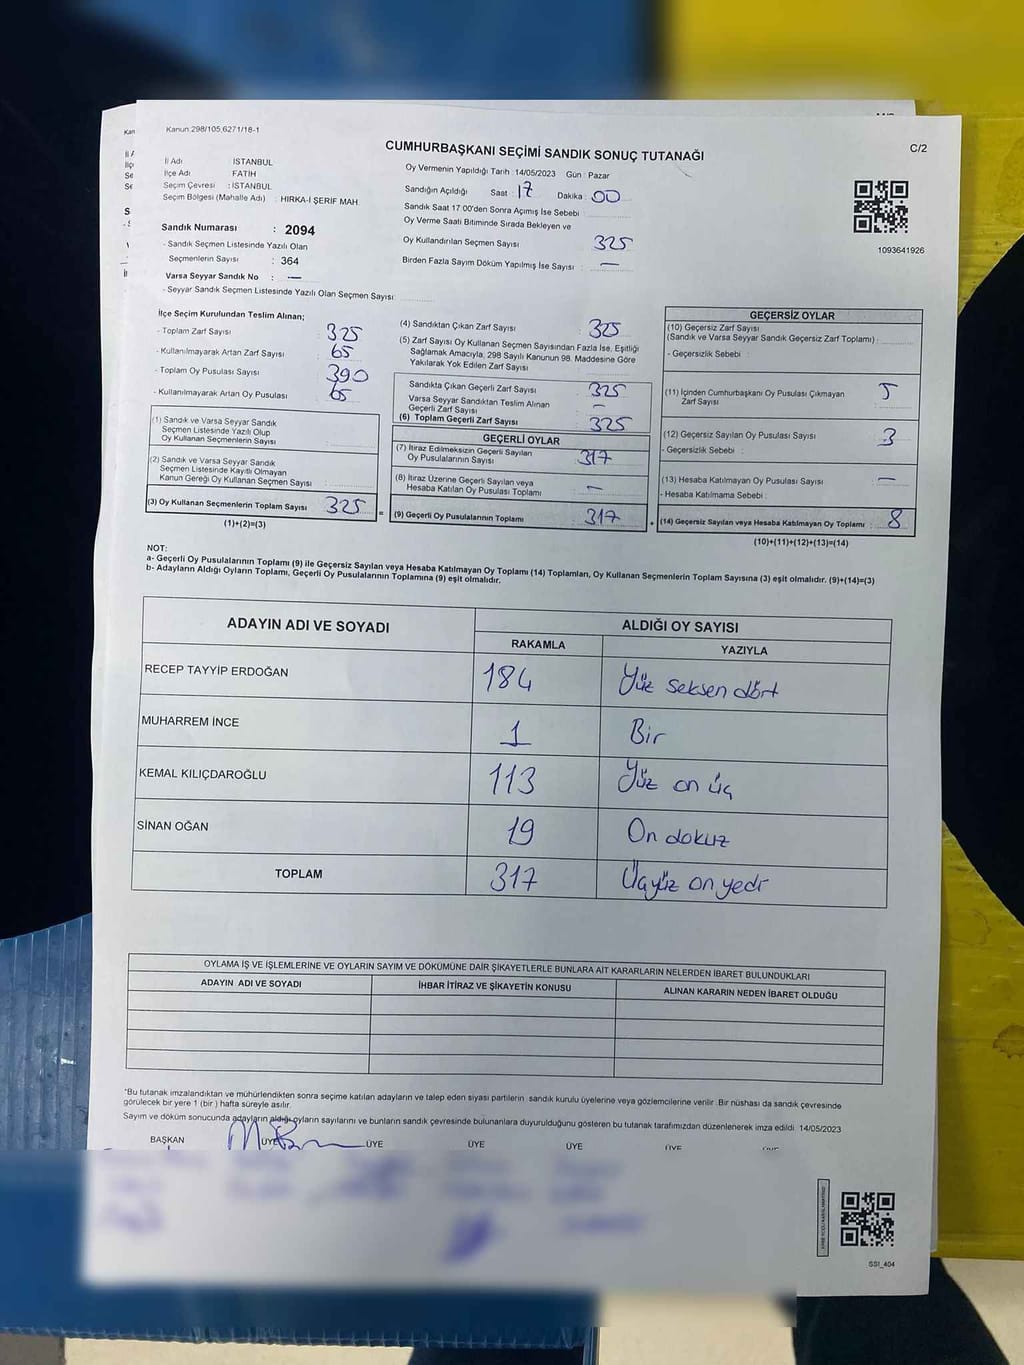 Kanun 298/105,6271/18-1
CUMHURBAŞKANI SEÇİMİ SANDIK SONUÇ TUTANAĞI
C/2
İl Adı İSTANBUL
İlçe Adı FATİH
Seçim Çevresi : İSTANBUL
Seçim Bölgesi (Mahalle Adı) : HIRKA-İ ŞERİF MAH.
Sandık Numarası : 2094
- Sandık Seçmen Listesinde Yazılı Olan
Seçmenlerin Sayısı : 364
Varsa Seyyar Sandık No : —
- Seyyar Sandık Seçmen Listesinde Yazılı Olan Seçmen Sayısı:
Oy Vermenin Yapıldığı Tarih 14/05/2023 Gün : Pazar
Sandığın Açıldığı Saat : 17 Dakika : 00
Sandık Saat 17 00'den Sonra Açımış İse Sebebi :
Oy Verme Saati Bitiminde Sırada Bekleyen ve
Oy Kullandırılan Seçmen Sayısı 325
Birden Fazla Sayım Döküm Yapılmış İse Sayısı : —
1093641926
İlçe Seçim Kurulundan Teslim Alınan;
- Toplam Zarf Sayısı : 325
- Kullanılmayarak Artan Zarf Sayısı : 65
- Toplam Oy Pusulası Sayısı : 390
- Kullanılmayarak Artan Oy Pusulası : 65
(1) Sandık ve Varsa Seyyar Sandık
Seçmen Listesinde Yazılı Olup
Oy Kullanan Seçmenlerin Sayısı :
(2) Sandık ve Varsa Seyyar Sandık
Seçmen Listesinde Kayıtlı Olmayan
Kanun Gereği Oy Kullanan Seçmen Sayısı :
(3) Oy Kullanan Seçmenlerin Toplam Sayısı : 325
(1)+(2)=(3)
=
(4) Sandıktan Çıkan Zarf Sayısı : 325
(5) Zarf Sayısı Oy Kullanan Seçmen Sayısından Fazla İse, Eşitliği
Sağlamak Amacıyla, 298 Sayılı Kanunun 98. Maddesine Göre
Yakılarak Yok Edilen Zarf Sayısı :
Sandıkta Çıkan Geçerli Zarf Sayısı : 325
Varsa Seyyar Sandıktan Teslim Alınan
Geçerli Zarf Sayısı : —
(6) Toplam Geçerli Zarf Sayısı : 325
GEÇERLİ OYLAR
(7) İtiraz Edilmeksizin Geçerli Sayılan
Oy Pusulalarının Sayısı : 317
(8) İtiraz Üzerine Geçerli Sayılan veya
Hesaba Katılan Oy Pusulası Toplamı : —
(9) Geçerli Oy Pusulalarının Toplamı : 317
+
GEÇERSİZ OYLAR
(10) Geçersiz Zarf Sayısı
(Sandık ve Varsa Seyyar Sandık Geçersiz Zarf Toplamı) :
- Geçersizlik Sebebi :
(11) İçinden Cumhurbaşkanı Oy Pusulası Çıkmayan
Zarf Sayısı : 5
(12) Geçersiz Sayılan Oy Pusulası Sayısı : 3
- Geçersizlik Sebebi :
(13) Hesaba Katılmayan Oy Pusulası Sayısı : —
- Hesaba Katılmama Sebebi :
(14) Geçersiz Sayılan veya Hesaba Katılmayan Oy Toplamı : 8
(10)+(11)+(12)+(13)=(14)
NOT:
a- Geçerli Oy Pusulalarının Toplamı (9) ile Geçersiz Sayılan veya Hesaba Katılmayan Oy Toplamı (14) Toplamları, Oy Kullanan Seçmenlerin Toplam Sayısına (3) eşit olmalıdır. (9)+(14)=(3)
b- Adayların Aldığı Oyların Toplamı, Geçerli Oy Pusulalarının Toplamına (9) eşit olmalıdır.
ADAYIN ADI VE SOYADI
ALDIĞI OY SAYISI
RAKAMLA YAZIYLA
RECEP TAYYİP ERDOĞAN 184 Yüz seksen dört
MUHARREM İNCE 1 Bir
KEMAL KILIÇDAROĞLU 113 Yüz on üç
SİNAN OĞAN 19 On dokuz
TOPLAM 317 Üçyüz on yedi
OYLAMA İŞ VE İŞLEMLERİNE VE OYLARIN SAYIM VE DÖKÜMÜNE DAİR ŞİKAYETLERLE BUNLARA AİT KARARLARIN NELERDEN İBARET BULUNDUKLARI
ADAYIN ADI VE SOYADI İHBAR İTİRAZ VE ŞİKAYETİN KONUSU ALINAN KARARIN NEDEN İBARET OLDUĞU
*Bu tutanak imzalandıktan ve mühürlendikten sonra seçime katılan adayların ve talep eden siyasi partilerin sandık kurulu üyelerine veya gözlemcilerine verilir. Bir nüshası da sandık çevresinde
görülecek bir yere 1 (bir) hafta süreyle asılır.
Sayım ve döküm sonucunda adayların aldığı oyların sayılarını ve bunların sandık çevresinde bulunanlara duyurulduğunu gösteren bu tutanak tarafımızdan düzenlenerek imza edildi 14/05/2023
BAŞKAN ÜYE ÜYE ÜYE ÜYE ÜYE
SSI_404